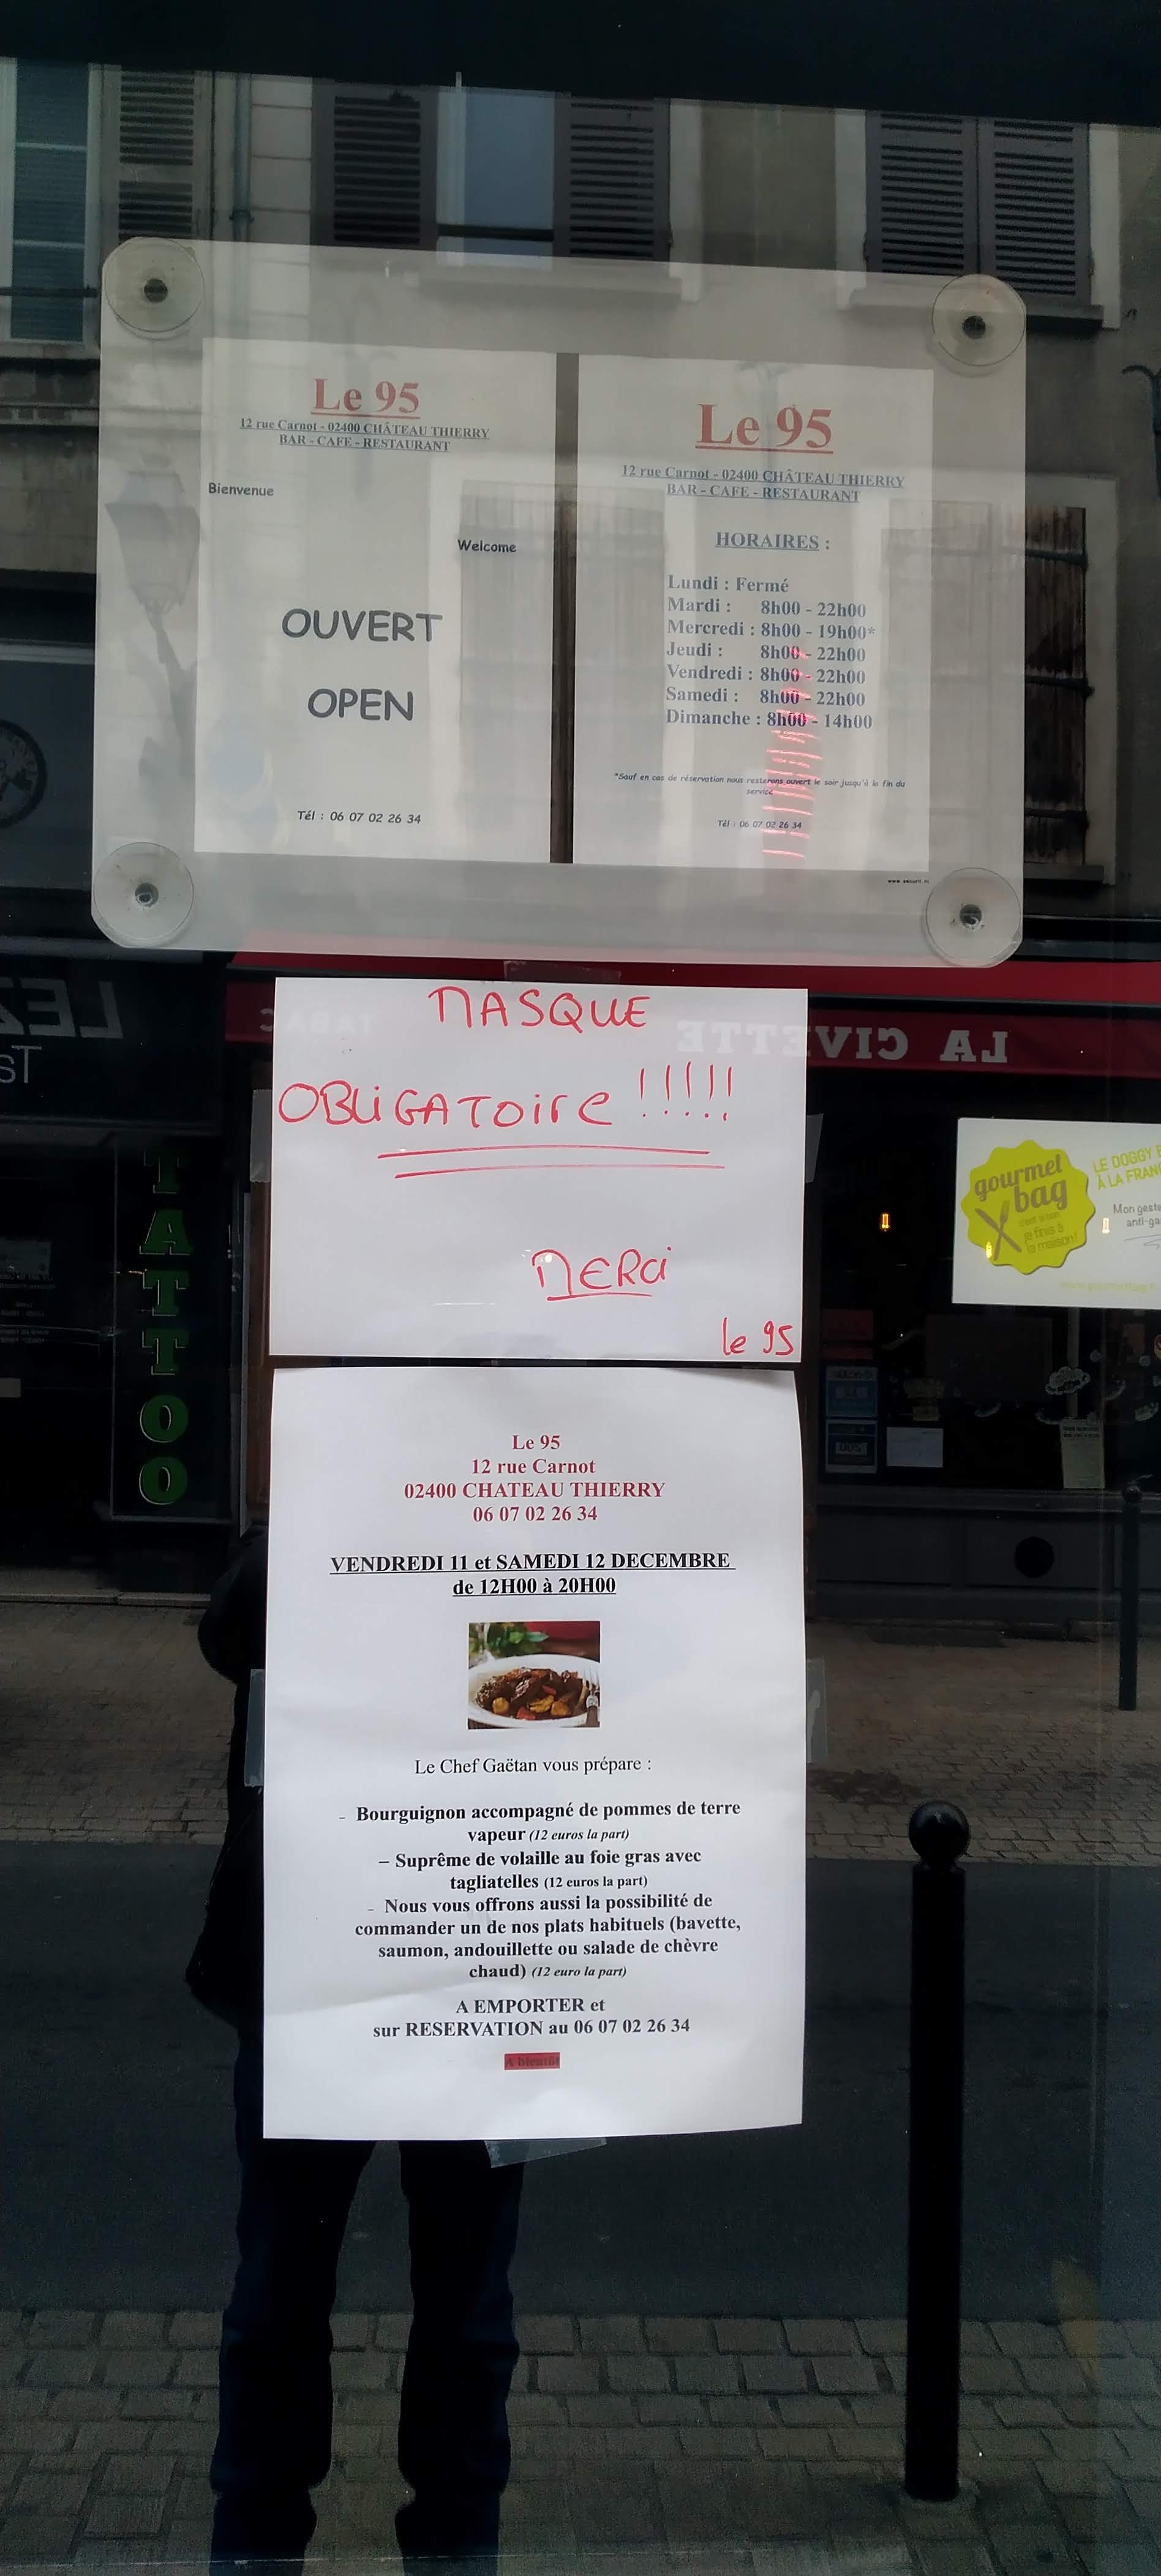 Le 95
12 rue Carnot - 02400 CHÂTEAU THIERRY
BAR - CAFE - RESTAURANT
Bienvenue
Welcome
OUVERT
OPEN
Tél : 06 07 02 26 34
Le 95
12 rue Carnot - 02400 CHÂTEAU THIERRY
BAR - CAFE - RESTAURANT
HORAIRES :
Lundi : Fermé
Mardi : 8h00 - 22h00
Mercredi : 8h00 - 19h00*
Jeudi : 8h00 - 22h00
Vendredi : 8h00 - 22h00
Samedi : 8h00 - 22h00
Dimanche : 8h00 - 14h00
*Sauf en cas de réservation nous resterons ouvert le soir jusqu'à la fin du
service
Tél : 06 07 02 26 34
MASQUE
OBLiGAToire !!!!!
MERci
le 95
LA CIVETTE
TATTOO
gourmet
bag
c'est si bon
je finis à
la maison!
LE DOGGY
À LA FRAN
Mon geste
anti-ga
Le 95
12 rue Carnot
02400 CHATEAU THIERRY
06 07 02 26 34
VENDREDI 11 et SAMEDI 12 DECEMBRE
de 12H00 à 20H00
Le Chef Gaëtan vous prépare :
- Bourguignon accompagné de pommes de terre
vapeur (12 euros la part)
– Suprême de volaille au foie gras avec
tagliatelles (12 euros la part)
- Nous vous offrons aussi la possibilité de
commander un de nos plats habituels (bavette,
saumon, andouillette ou salade de chèvre
chaud) (12 euro la part)
A EMPORTER et
sur RESERVATION au 06 07 02 26 34
A bientôt